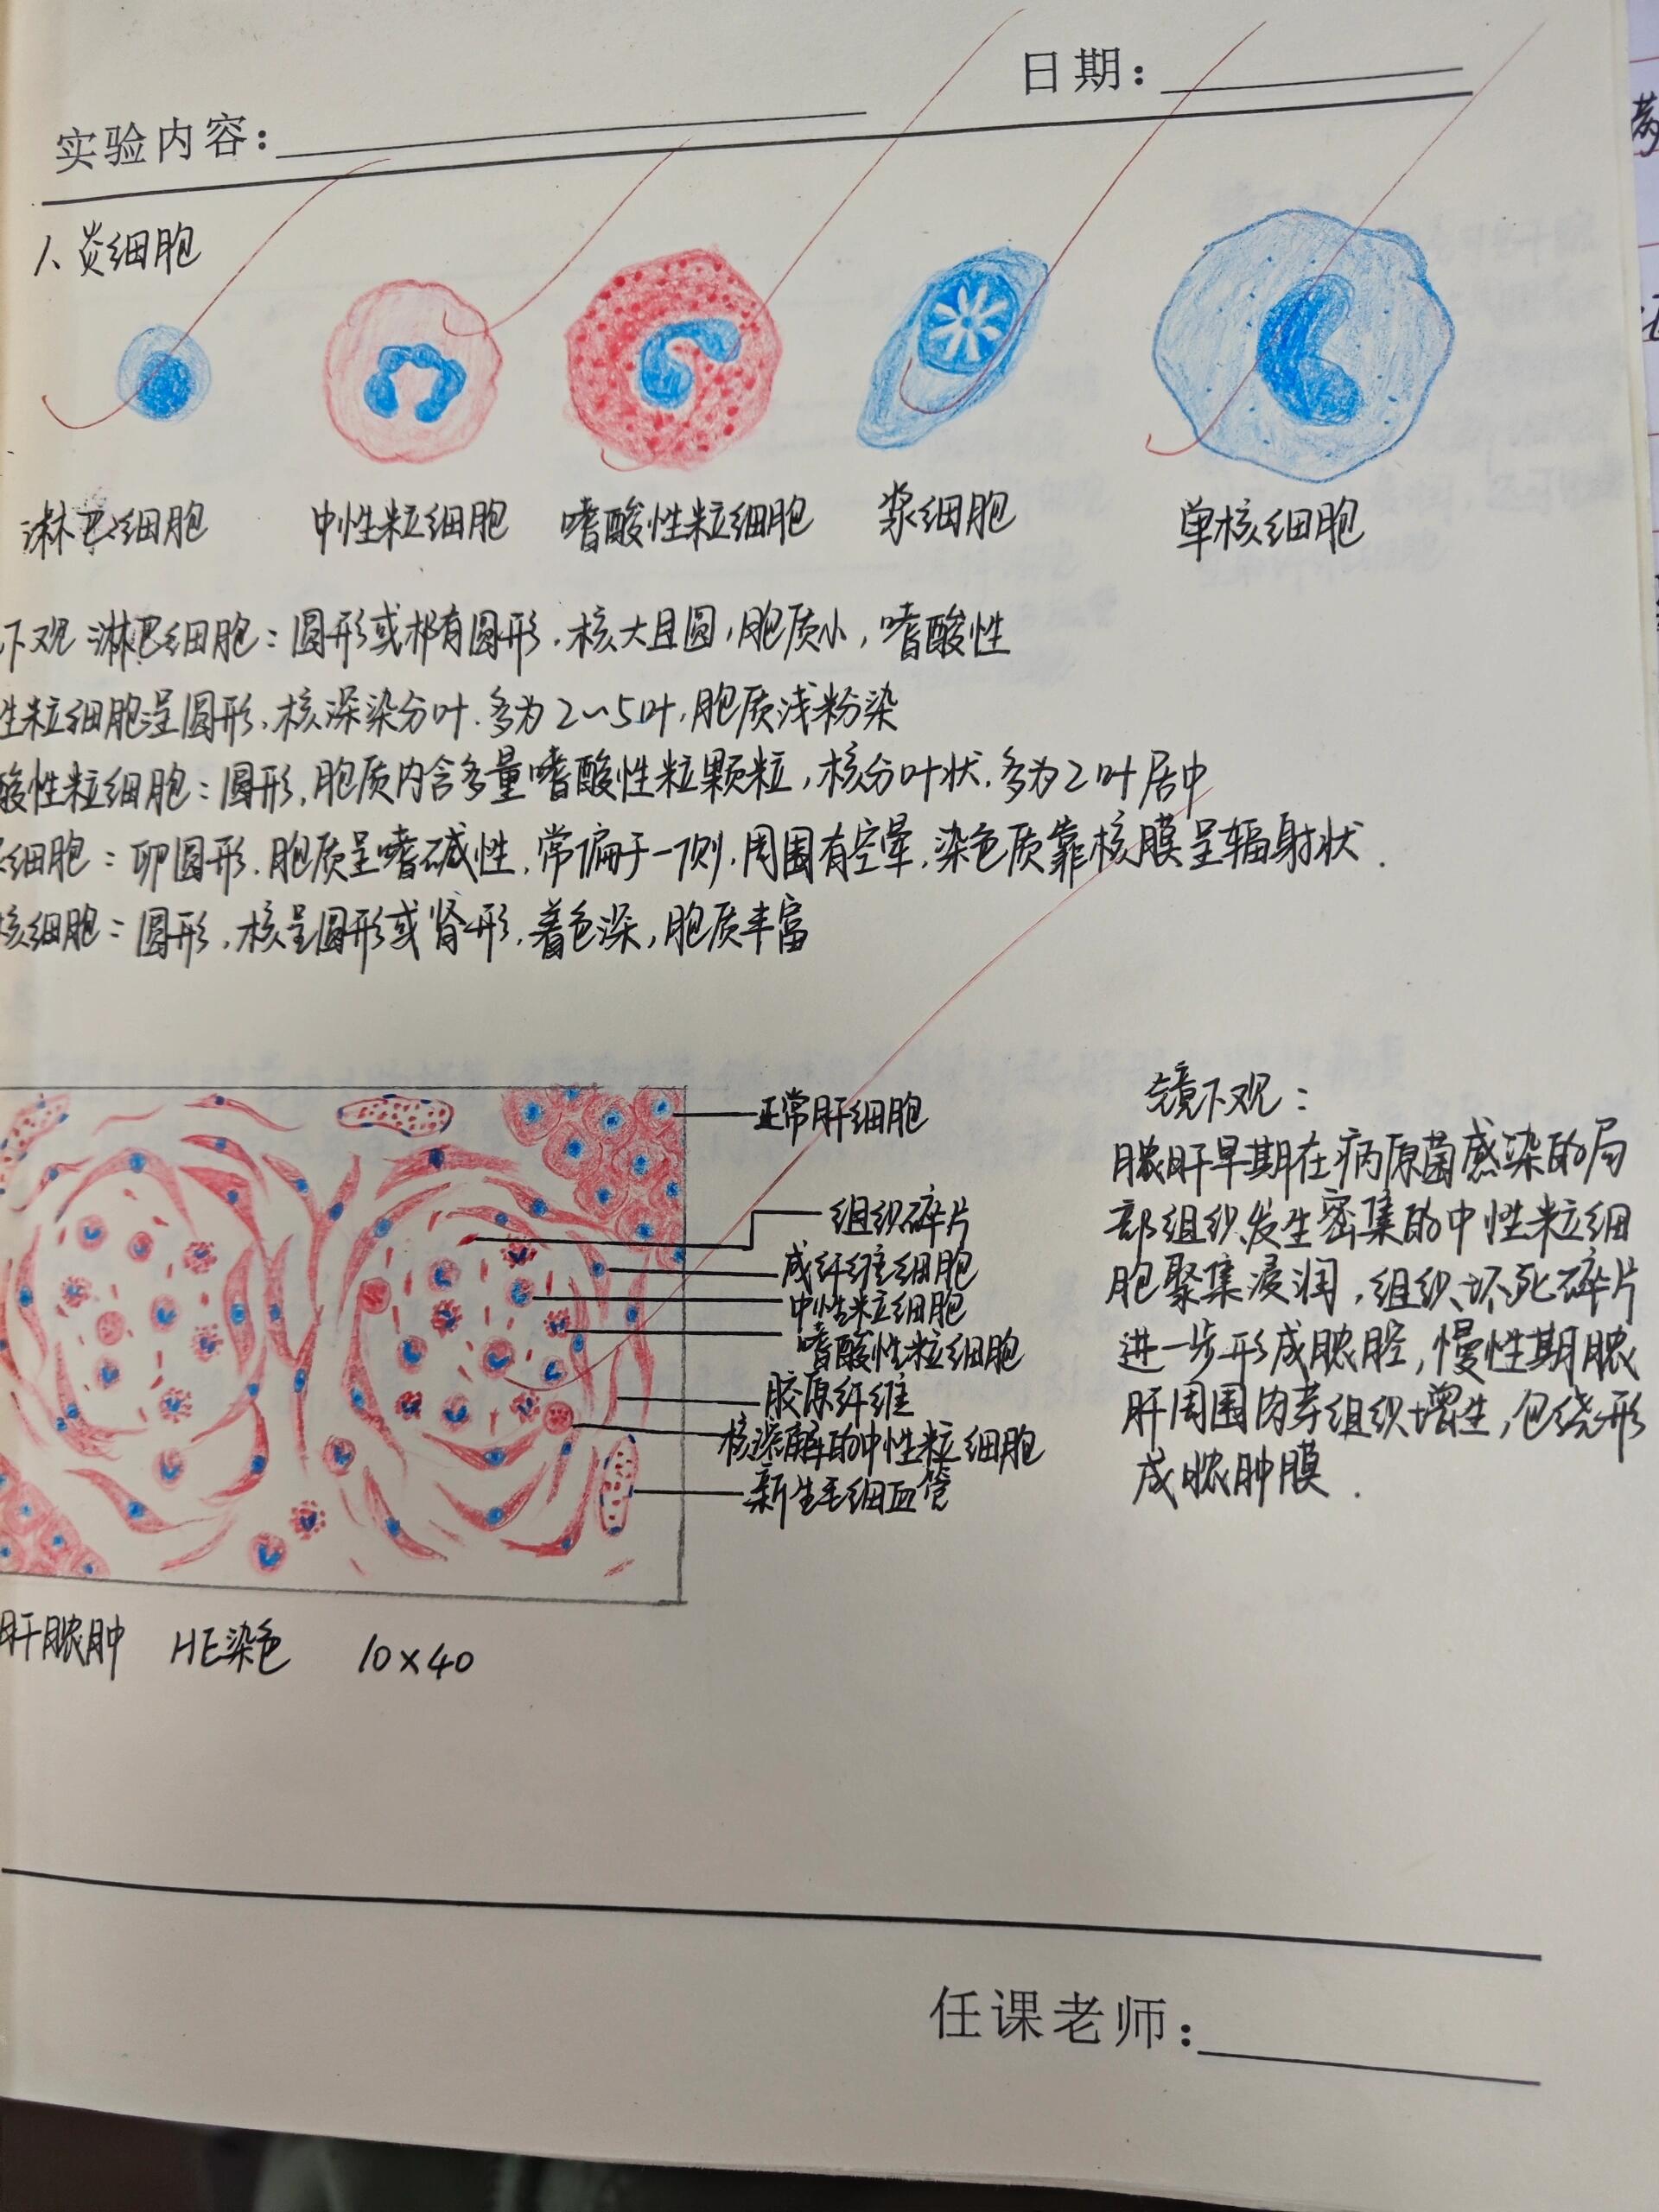 日期：
实验内容：
1、炎细胞
淋巴细胞 中性粒细胞 嗜酸性粒细胞 浆细胞 单核细胞
下观 淋巴细胞：圆形或椭有圆形，核大且圆，胞质小，嗜酸性
性粒细胞呈圆形，核深染分叶，多为2~5叶，胞质浅粉染
酸性粒细胞：圆形，胞质内含多量嗜酸性粒颗粒，核分叶状，多为2叶居中
细胞：卵圆形，胞质呈嗜碱性，常偏于一侧，周围有空晕，染色质靠核膜呈辐射状．
核细胞：圆形，核呈圆形或肾形，着色深，胞质丰富
正常肝细胞
组织碎片
成纤维细胞
中性粒细胞
嗜酸性粒细胞
胶原纤维
核溶解的中性粒细胞
新生毛细血管
镜下观：
脓肝早期在病原菌感染的局
部组织发生密集的中性粒细
胞聚集浸润，组织坏死碎片
进一步形成脓腔，慢性期脓
肝周围肉芽组织增生，包绕形
成脓肿膜．
肝脓肿 HE染色 10×40
任课老师：